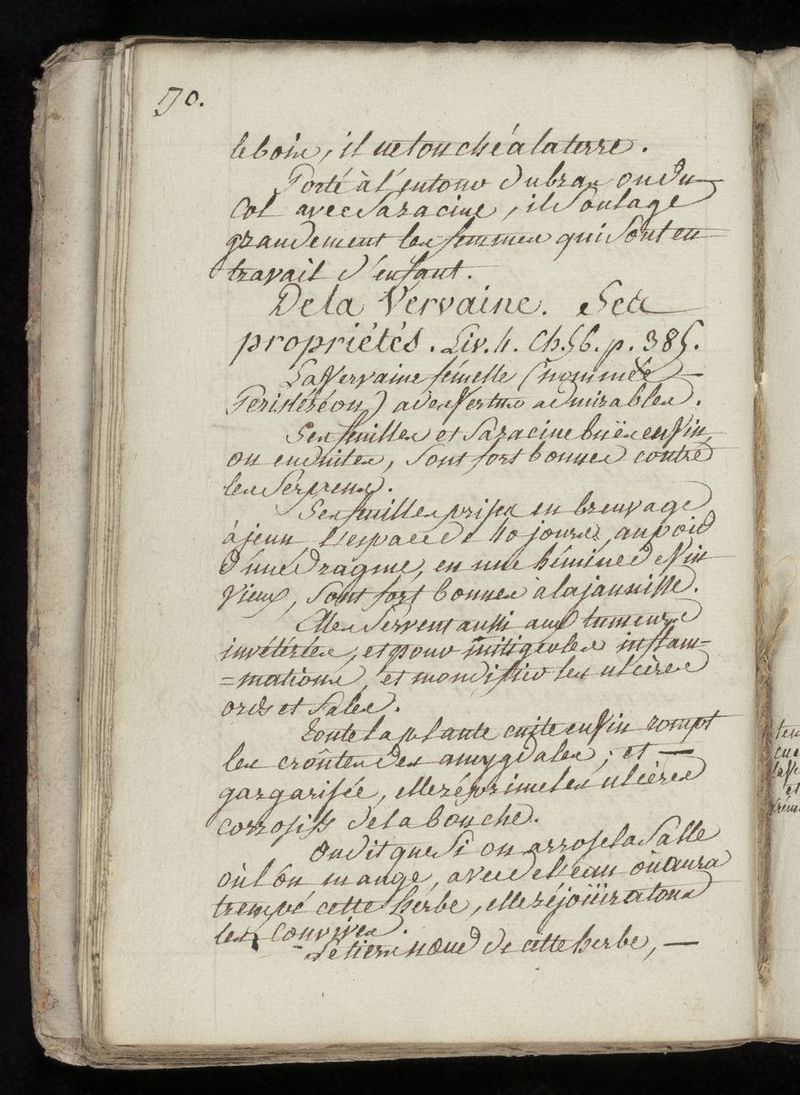 70.
le boire, il ne touche à la terre.
Porté à l'entour du bras ou du
Col avec sa racine, il soulage
grandement les femmes qui sont en
travail d'enfant.
De la Vervaine. Ses
propriétés. Liv. 4. Ch. 56. p. 385.
La Vervaine femelle (nommée
Peristeréon) a des vertus admirables.
Ses feuilles et sa racine buës en vin,
ou enduites, sont fort bonnes contre
les Serpens.
Ses feuilles prises en breuvage
à jeun l'espace de 40 jours, au poid
d'une dragme, en une hémine de vin
vieux, sont fort bonnes à la jaunisse.
Elles servent aussi aux tumeurs
invétérées, et pour mitiger les inflam-
=mations, et mondifier les ulcères
ords et sales.
Toute la plante cuite en vin rompt
les croûtes des amygdales ; et
gargarisée, elle réprime les ulcères
corrosifs de la bouche.
On dit que si on arrose la Salle
où l'on mange, avec de l'eau où aura
trempé cette herbe, elle réjouïra tous
les Convives.
Le tiers nœud de cette herbe,